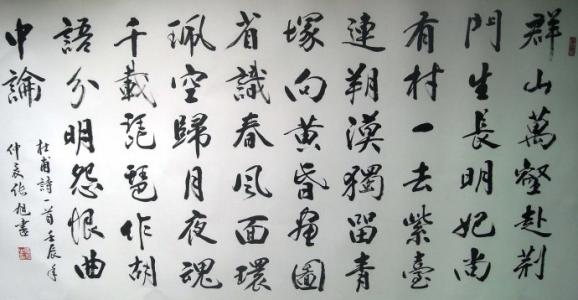 群山萬壑赴荆
門生長明妃尚
有村一去紫臺
連朔漠獨留青
塚向黄昏畫圖
省識春風面環
珮空歸月夜魂
千載琵琶作胡
語分明怨恨曲
中論
杜甫詩一首壬辰年
仲旭書